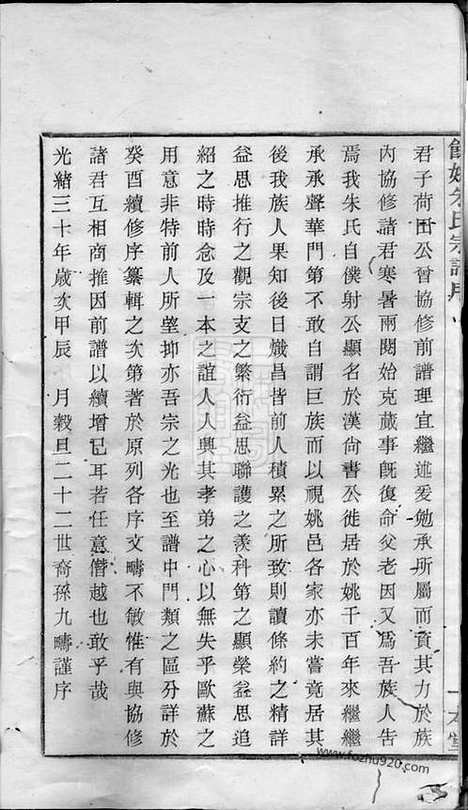 餘姚朱氏宗譜序
君子荷田公曾協修前譜理宜繼述爰勉承所屬而貧其力於族
內協修諸君寒暑兩閱始克蕆事旣復命父老因又爲吾族人告
焉我朱氏自僕射公顯名於漢尙書公徙居於姚千百年來繼繼
承承聲華門第不敢自謂巨族而以視姚邑各家亦未嘗竟居其
後我族人果知後日熾昌皆前人積累之所致則讀條約之精詳
益思推行之觀宗支之繁衍益思聯護之羨科第之顯榮益思追
紹之時時念及一本之誼人人興其孝弟之心以無失乎歐蘇之
用意非特前人所望抑亦吾宗之光也至譜中門類之區分詳於
癸酉續修序纂輯之次第著於原列各序文疇不敏惟有與協修
諸君互相商推因前譜以續增已耳若任意僭越也敢乎哉
光緖三十年歲次甲辰 月穀旦二十二世裔孫九疇謹序
一本堂
www.fozhu920.com